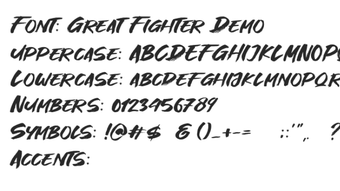 Font: Great Fighter Demo
Uppercase: ABCDEFGHIJKLMNOP
Lowercase: ABCDEFGHIJKLMNOPQR
Numbers: 0123456789
Symbols: !@#$ &()_+-= :;'", ?
Accents: